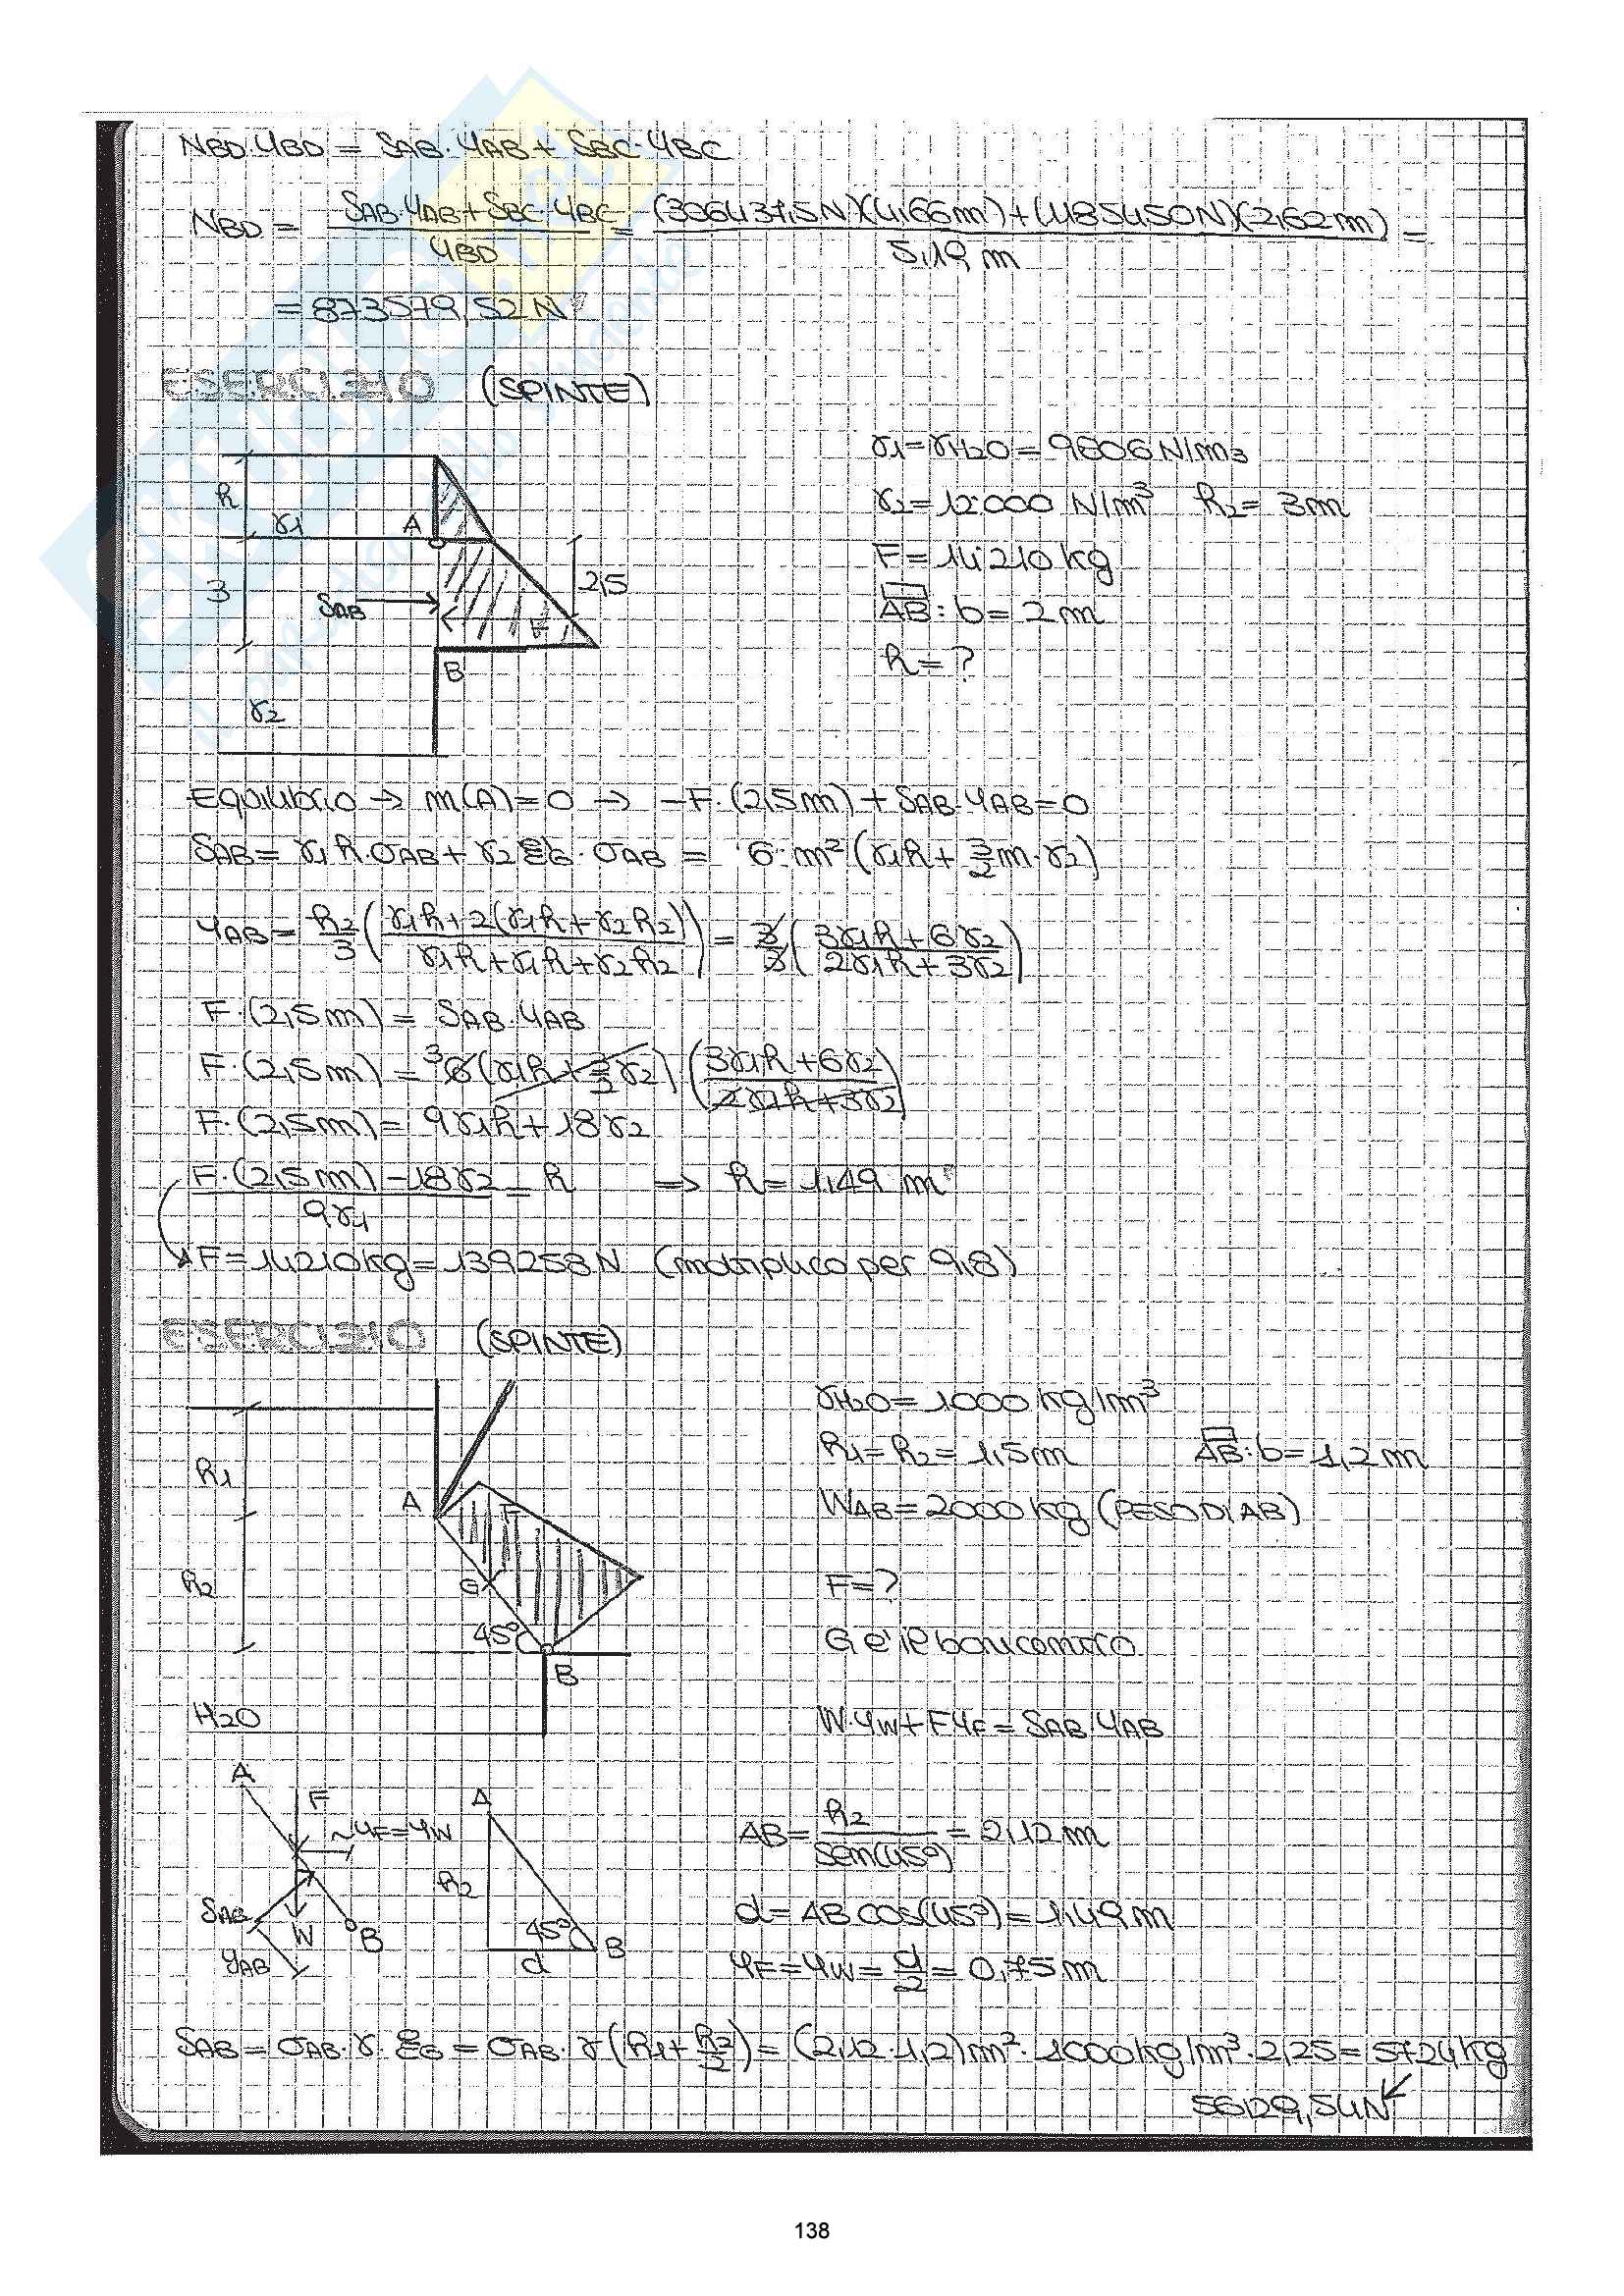 NBD·YBD = SAB·YAB + SBC·YBC
NBD = SAB·YAB+SBC·YBC / YBD = (306437,5N)(4,66m)+(1185450N)(2,62m) / 5,19 m =
= 873579,52 N
ESERCIZIO (SPINTE)
γ1=γH2O=9806 N/m3
γ2=12.000 N/m³ h2= 3m
F=14.210 kg
AB: b=2m
h=?
h
γ1
A
3
2,5
SAB
F
B
γ2
Equilibrio → M(A)=0 → -F·(2,5m)+SAB·YAB=0
SAB= γ1 h·σAB+γ2 ξG·σAB = 6 m²(γ1h+3/2 m·γ2)
YAB= h2/3 (γ1h+2(γ1h+γ2h2) / γ1h+γ1h+γ2h2) = 3/3 (3γ1h+6γ2 / 2γ1h+3γ2)
F·(2,5m)= SAB·YAB
F·(2,5m)= ³6(γ1h+3/2γ2)·(3γ1h+6γ2 / 2γ1h+3γ2)
F·(2,5m)= 9γ1h+18γ2
F·(2,5m)-18γ2 / 9γ1 = h ⇒ h=1,49 m
F=14210kg=139258N (moltiplico per 9,8)
ESERCIZIO (SPINTE)
γH2O=1000 kg/m³
h1=h2=1,5m AB: b=1,2m
WAB=2000kg (PESO DI AB)
F=?
G è il baricentro
W·YW+F·YF=SAB·YAB
h1
A
F
h2
G
45°
B
H2O
A
F
YF=YW
SAB
W
B
YAB
A
h2
45°
B
d
AB= h2 / sen(45°) = 2,12m
d=AB cos(45°)=1,49m
YF=YW= d/2 = 0,75m
SAB=σAB·γ·ξG=σAB·γ(h1+h2/2)=(2,12·1,2)m²·1000kg/m³·2,25=5724kg
56129,54N
138